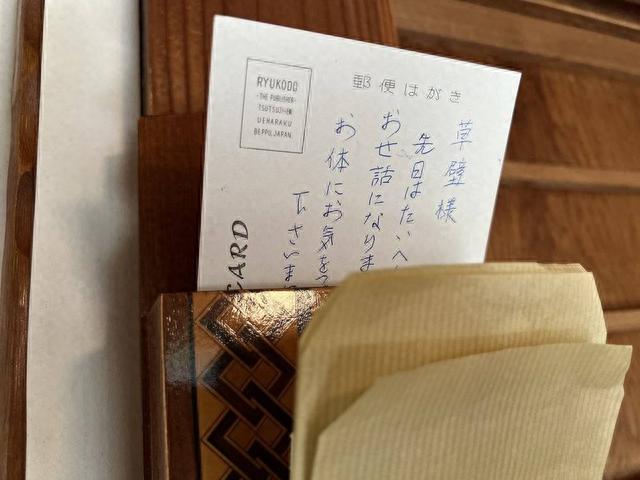 郵便はがき
RYUKODO
-THE PUBLISHER-
TSUTSUJI-EN
UEHARAKU
BEPPU,JAPAN.
草壁様
先日はたいへ
おせ話になりま
お体にお気をつ
下さいませ
CARD